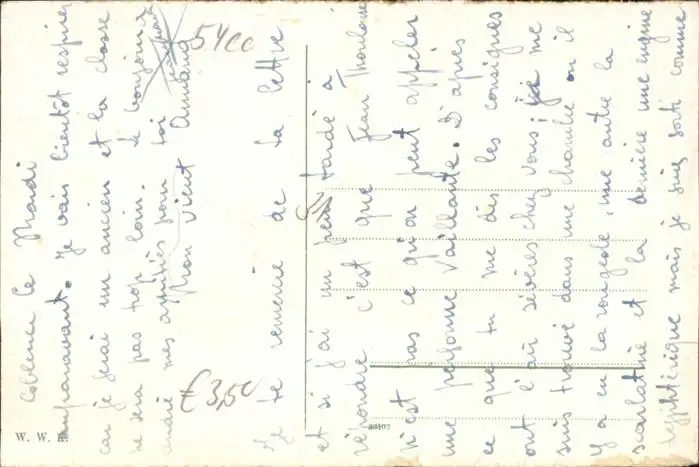 Coblence le Mardi
auparavant. Je vais bientôt respirer
car je serai un ancien et la classe
ne sera pas trop loin. le bonjour a
andré mes amitiés pour toi
Mon vieux Armand
Je te remercie de ta lettre
et si j'ai un peu tardé à
répondre c'est que Jean Thoulouse
n'est pas ce qu'on peut appeler
une personne vaillante. D'après
ce que tu me dis les consignes
ont l'air sévères chez vous, je me
suis trouvé dans une chambre où il
y a eu la rougeole, une autre la
scarlatine et la dernière une angine
mais je suis sorti comme
5400
31
€ 3,50
W. W. K.